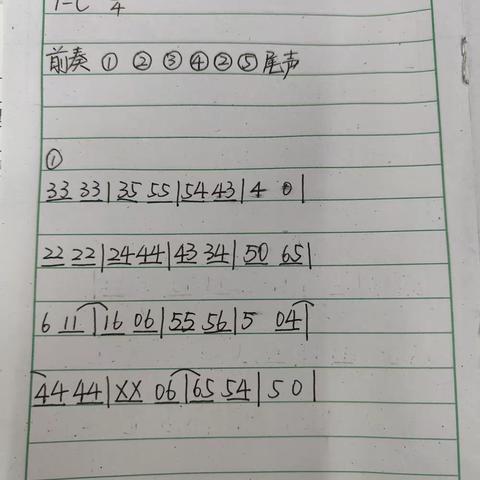 1=C 4
前奏 ① ② ③ ④ ② ⑤ 尾声
①
33 33 | 35 55 | 54 43 | 4 0 |
22 22 | 24 44 | 43 34 | 50 65 |
6 11 | 16 06 | 55 56 | 5 04 |
44 44 | XX 06 | 65 54 | 5 0 |